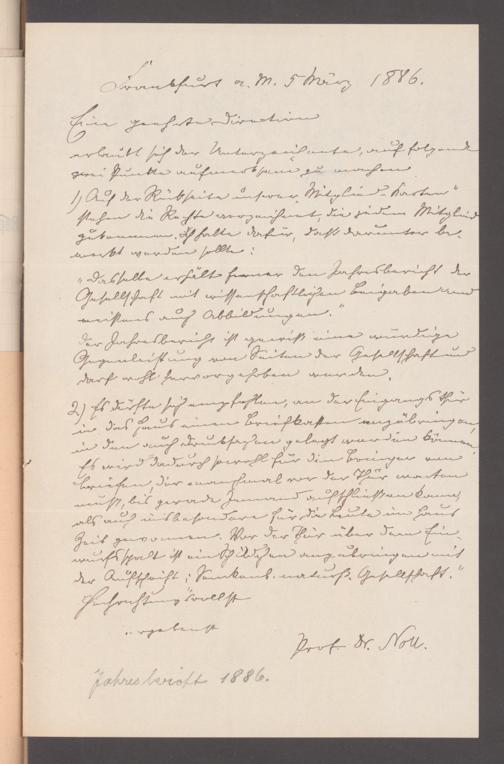 Frankfurt a. M. 5 März 1886.
Eine geehrte Direction
erlaubt sich der Unterzeichnete, auf folgende
zwei Punkte aufmerksam zu machen.
1) Auf der Rückseite unserer „Mitglied-Karten"
stehen die Rechte verzeichnet, die jedem Mitglied
zukommen. Ich halte dafür, daß darunter be-
merkt werden sollte:
„Dasselbe erhält ferner den Jahresbericht der
Gesellschaft mit wissenschaftlichen Beigaben und
meistens auch Abbildungen."
Der Jahresbericht ist gewiß eine würdige
Gegenleistung von Seiten der Gesellschaft und
darf wohl hervorgehoben werden.
2) Es dürfte sich empfehlen, an der Eingangsthür
in das Haus einen Briefkasten anzubringen,
in den auch Drucksachen gelegt werden können.
Es wird dadurch sowohl für den Bringer von
Briefen, der manchmal vor der Thür warten
muß, bis gerade Jemand aufschließen kann,
als auch insbesondere für die Leute im Haus
Zeit gewonnen. Vor der Thür über dem Ein-
wurfsspalt ist ein Schildchen anzubringen mit
der Aufschrift: „Senkenb. naturf. Gesellschaft."
Hochachtungsvollst
ergebenst
Prof. Dr. Noll.
Jahresbericht 1886.